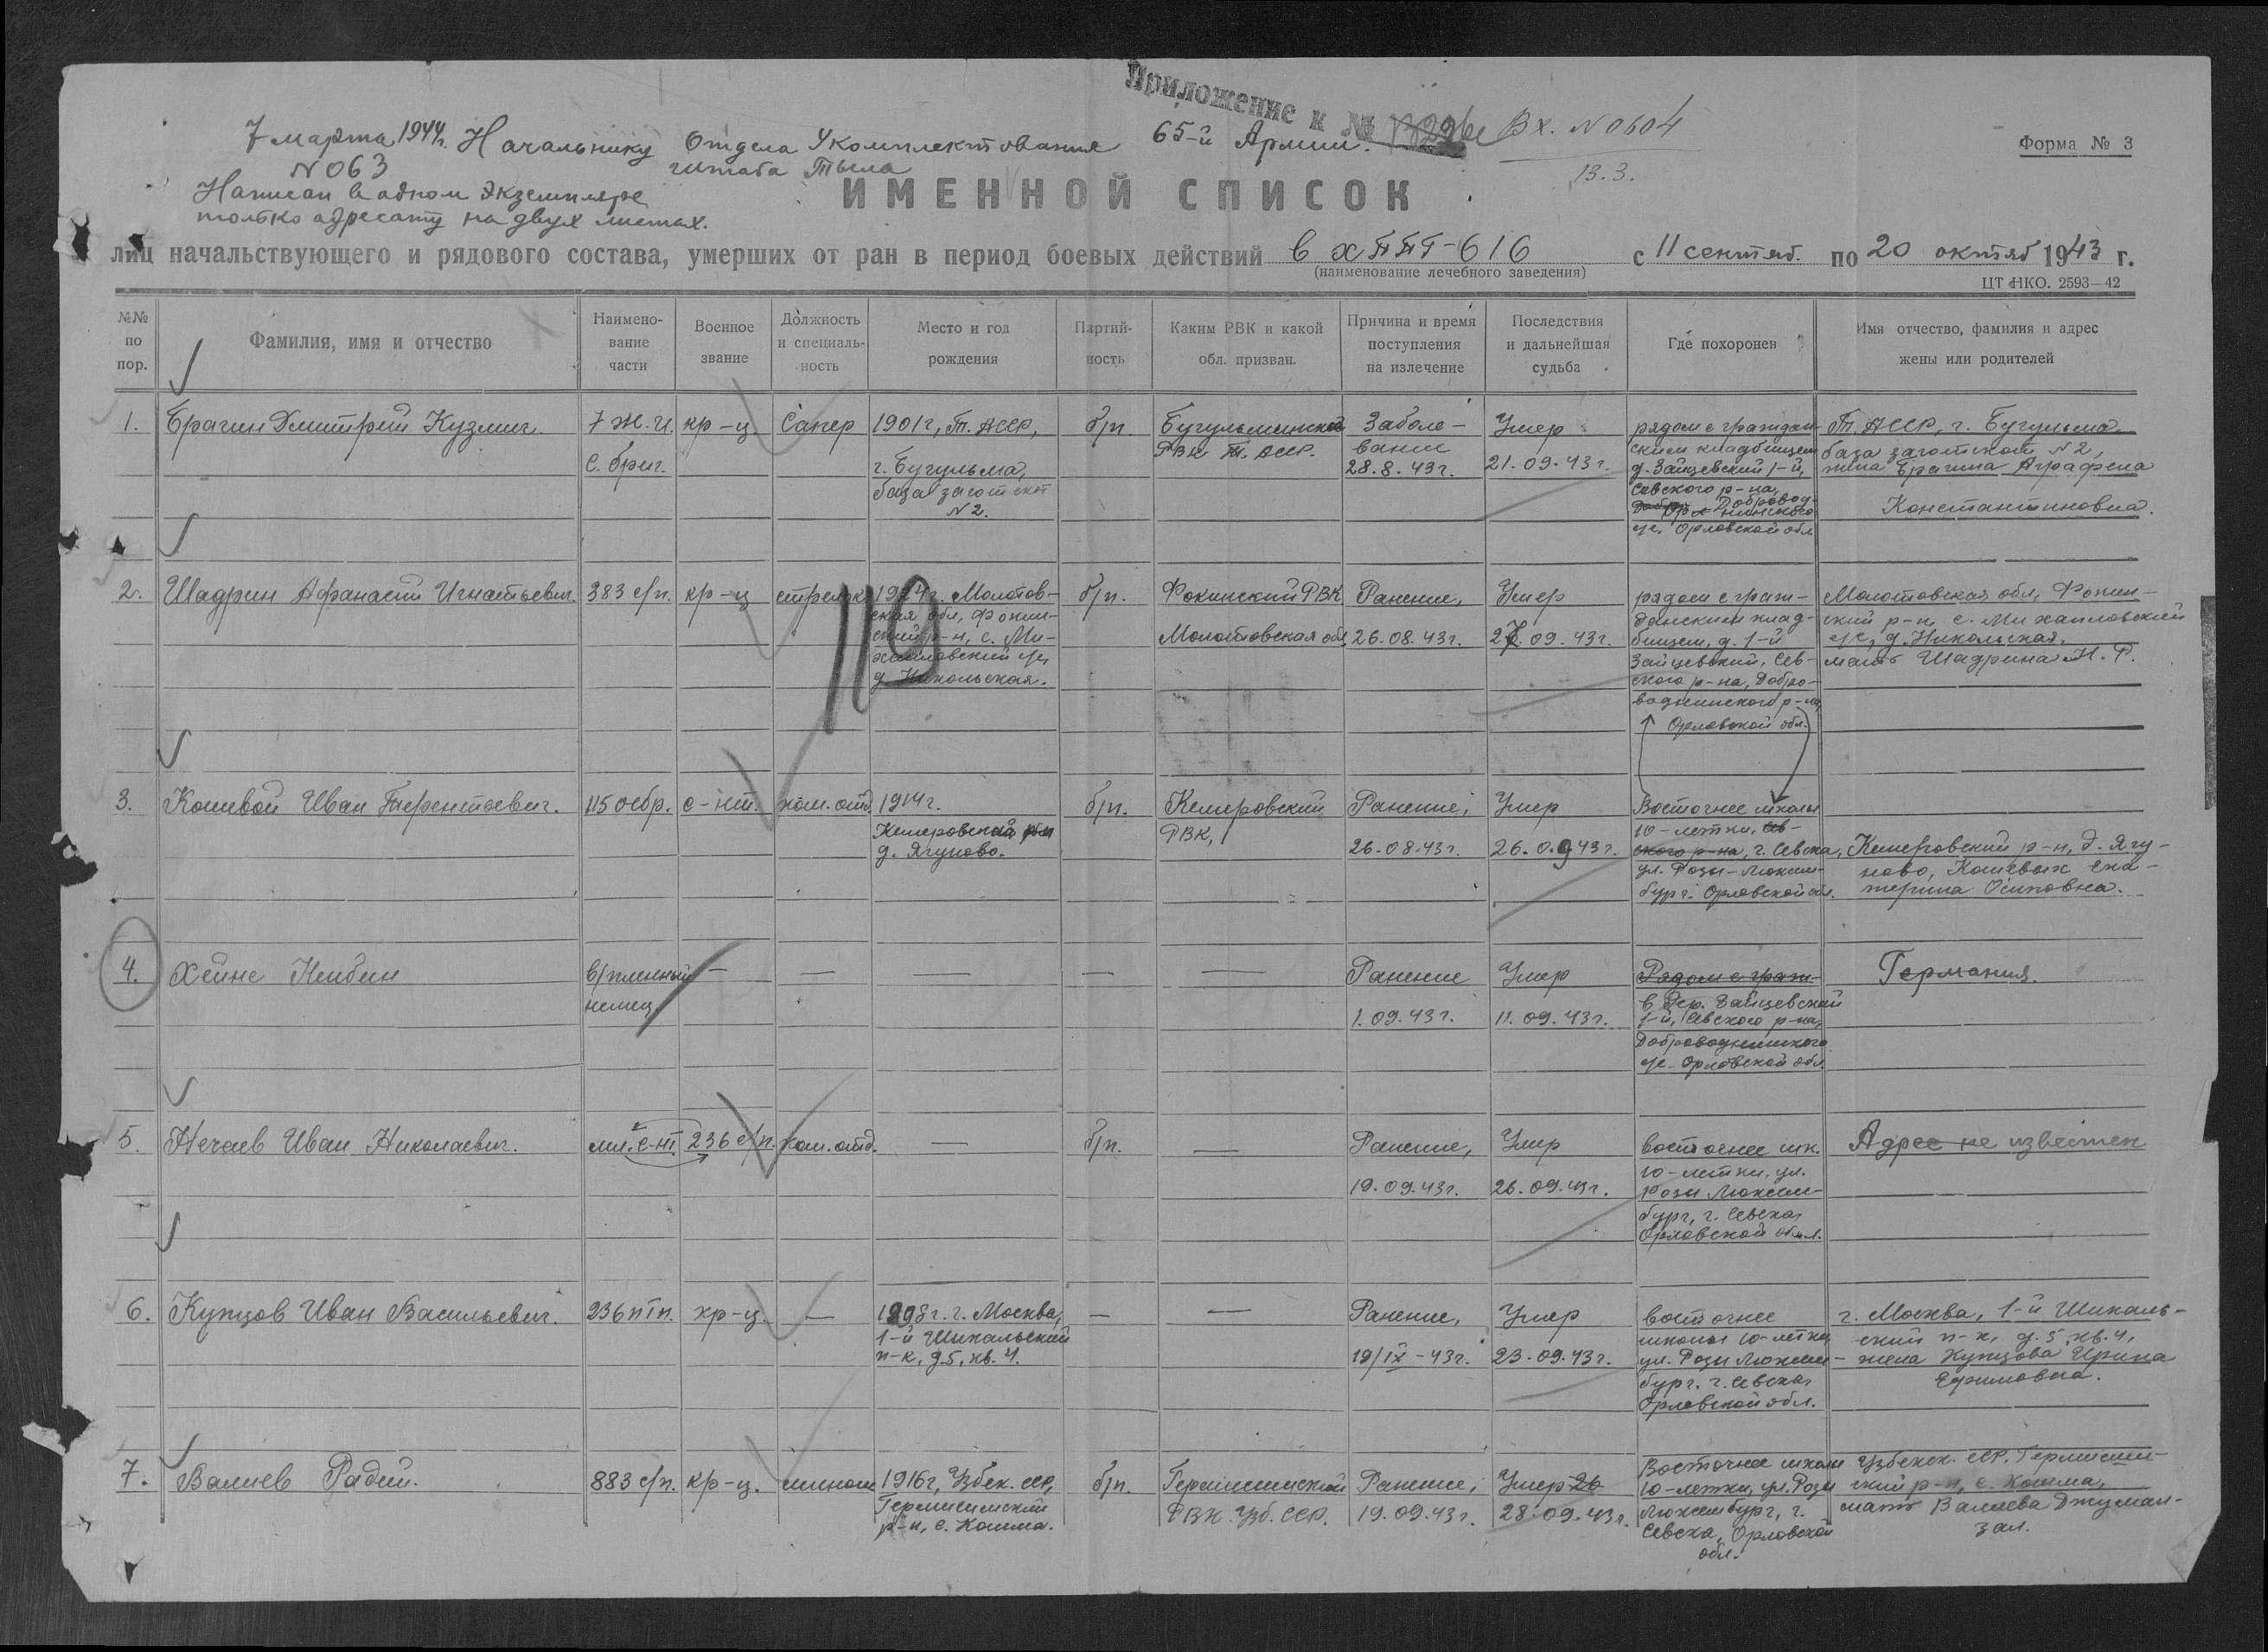 Приложение к №
7 марта 1944 г. Начальнику Отдела Укомплектования 65-й Армии. Вх. N 0604
N 063 штаба Тыла 13.3.
Форма № 3
Написан в одном экземпляре
только адресату на двух листах.
ИМЕННОЙ СПИСОК
лиц начальствующего и рядового состава, умерших от ран в период боевых действий в хППГ-616 с 11 сентяб. по 20 октяб 1943 г.
(наименование лечебного заведения)
ЦТ НКО. 2593—42
№№ по пор.
Фамилия, имя и отчество
Наимено-
вание
части
Военное
звание
Должность
и специаль-
ность
Место и год
рождения
Партий-
ность
Каким РВК и какой
обл. призван.
Причина и время
поступления
на излечение
Последствия
и дальнейшая
судьба
Где похоронен
Имя отчество, фамилия и адрес
жены или родителей
1.
Брагин Дмитрий Кузмич.
7 Ж.И.
С. бриг.
кр-ц
Сапер
1901 г, Т. АССР,
г. Бугульма,
база загот скот
N 2.
б/п.
Бугульминский
РВК Т. АССР.
Заболе-
вание
28.8.43г.
Умер
21.09.43г.
рядом с граждан-
ским кладбищем
д. Зайцевский 1-й,
Севского р-на,
Добровод-
нинского
с/с. Орловской обл.
Т. АССР, г. Бугульма.
база заготскот N 2,
жена Брагина Аграфена
Константиновна.
2.
Шадрин Афанасий Игнатьевич.
383 с/п.
кр-ц
стрелок
1924г. Молотов-
ская обл, Фокин-
ский р-н, с. Ми-
хайловский с/с,
д. Никольская.
б/п.
Фокинский РВК
Молотовская обл,
Ранение,
26.08.43г.
Умер
27.09.43г.
рядом с граж-
данским клад-
бищем, д. 1-й
Зайцевский, Сев-
ского р-на, Добро-
воднинского р-на,
Орловской обл.
Молотовская обл, Фокин-
ский р-н, с. Михайловский
с/с, д. Никольская.
мать Шадрина Н. Р.
3.
Кошевой Иван Терентьевич.
115 осбр.
с-нт.
ком. отд.
1914г.
Кемеровский р-н
д. Ягуново.
б/п.
Кемеровский
РВК,
Ранение,
26.08.43г.
Умер
26.0.943г.
Восточнее школы
10-летки, Сев-
ского р-на, г. Севска,
ул. Розы-Люксем-
бург. Орловской обл.
Кемеровский р-н, д. Ягу-
ново, Кошевых Ека-
терина Осиповна.
4.
Хейнс Нибин
в/пленный
немец
—
—
—
—
—
Ранение
1.09.43г.
Умер
11.09.43г.
Рядом с граж-
в дер. Зайцевский
1-й, Севского р-на,
Доброводнинского
с/с Орловской обл.
Германия.
5.
Нечаев Иван Николаевич.
мл. с-нт.
236 с/п.
ком. отд.
—
б/п.
—
Ранение,
19.09.43г.
Умер
26.09.43г.
восточнее шк.
10-летки, ул.
Розы Люксем-
бург, г. Севска,
Орловской обл.
Адрес не известен
6.
Купцов Иван Васильевич.
236 птп.
кр-ц.
—
1908г. г. Москва,
1-й Шикальский
п-к, д.5, кв. 4.
—
—
Ранение,
19/IX-43г.
Умер
23.09.43г.
восточнее
школы 10-летки
ул. Розы Люксем-
бург. г. Севска,
Орловской обл.
г. Москва, 1-й Шикаль-
ский п-к, д. 5, кв. 4,
жена Купцова Ирина
Ефимовна.
7.
Валиев Радий.
883 с/п.
кр-ц.
1916г, Узбек. ССР,
Гермисимский
р-н, с. Кошма.
б/п.
Гермисимский
РВК. Узб. ССР.
Ранение,
19.09.43г.
Умер 26
28.09.43г.
Восточнее школы
10-летки, ул. Розы
Люксембург, г.
Севска, Орловской
обл.
Узбекск. ССР. Гермисим-
ский р-н, с. Кошма,
мать Валиева Джуман-
зал.
119